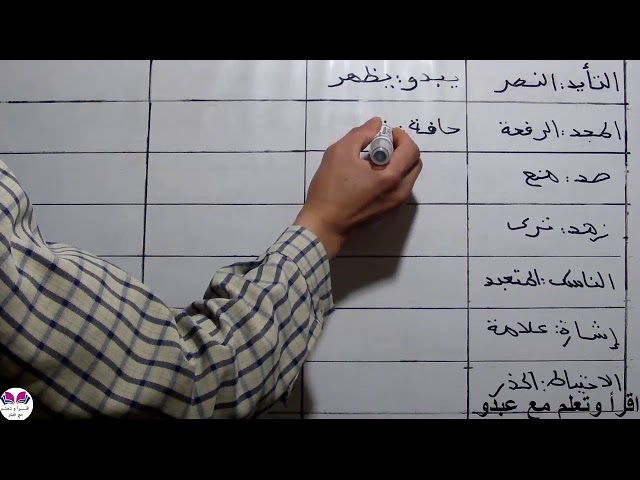 التأيد: النصر
المجد: الرفعة
صد: منع
زهد: ترك
الناسك: المتعبد
إشارة: علامة
الاحتياط: الحذر
يبدو: يظهر
حافة:
اقرأ وتعلم مع عبدو
اقرأ وتعلم
مع عبدو